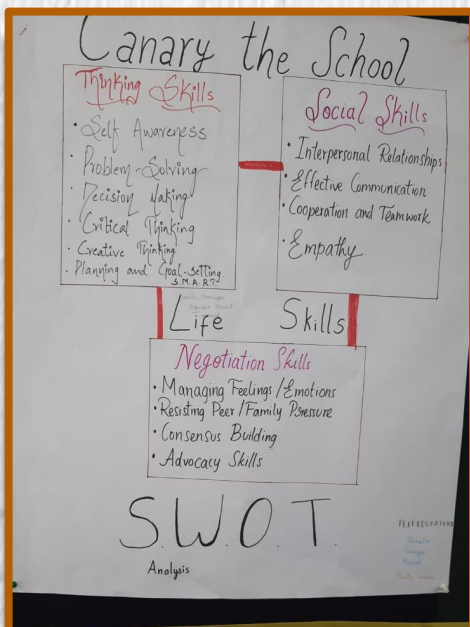 Canary the School
Thinking Skills
• Self Awareness
• Problem-Solving
• Decision Making
• Critical Thinking
• Creative Thinking
• Planning and Goal-Setting.
S.M.A.R.T
Social Skills
• Interpersonal Relationships
• Effective Communication
• Cooperation and Teamwork
• Empathy
Life Skills
Negotiation Skills
• Managing Feelings/Emotions
• Resisting Peer/Family Pressure
• Consensus Building
• Advocacy Skills
S.W.O.T.
Analysis
PEER EDUCATORS